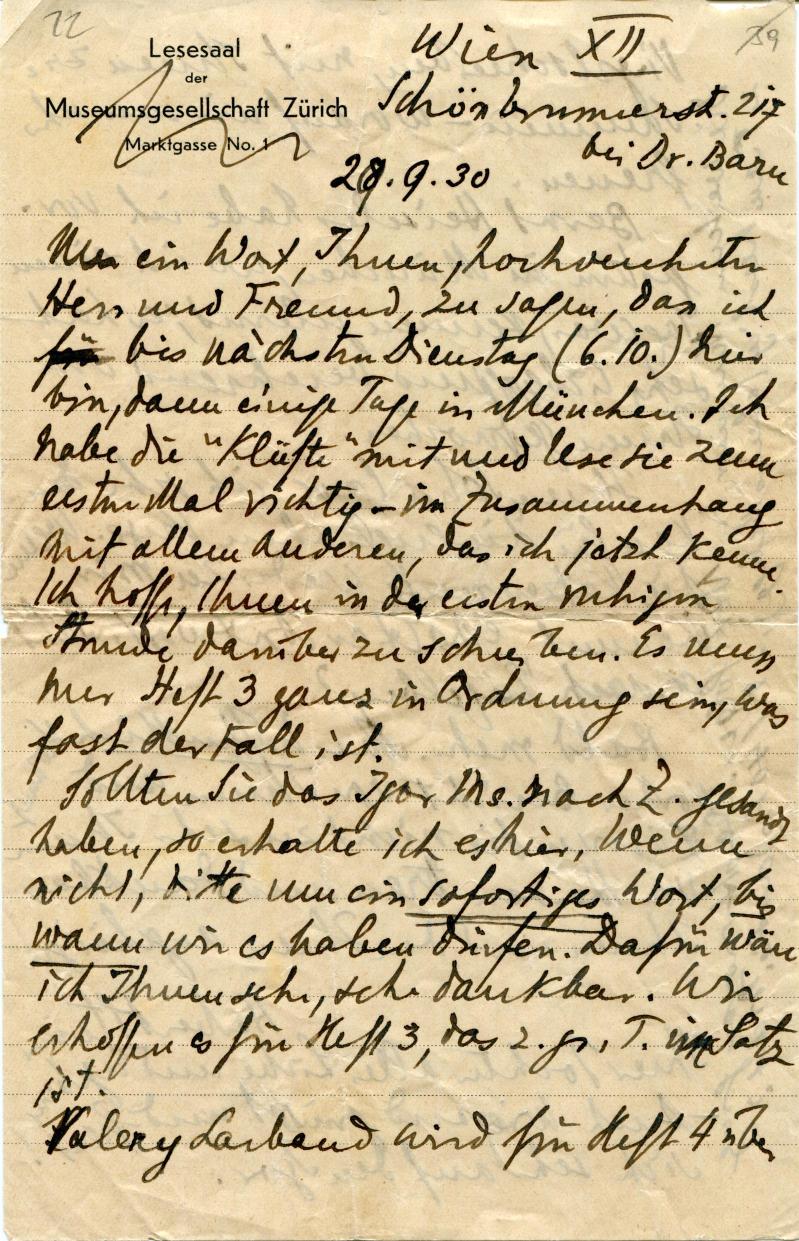 22
59
Lesesaal
der
Museumsgesellschaft Zürich
Marktgasse No. 1
Wien XII
Schönbrunnerst. 217
bei Dr. Baru
29.9.30
Nur ein Wort, Ihnen, hochverehrter
Herr und Freund, zu sagen, dass ich
für bis nächsten Dienstag (6.10.) hier
bin, dann einige Tage in München. Ich
habe die "Klüfte" mit und lese sie zum
ersten Mal richtig – im Zusammenhang
mit allem Anderen, das ich jetzt kenne.
Ich hoffe, Ihnen in der ersten ruhigen
Stunde darüber zu schreiben. Es muss
nur Heft 3 ganz in Ordnung sein, was
fast der Fall ist.
Sollten Sie das Igor Ms. nach Z. gesandt
haben, so erhalte ich es hier, Wenn
nicht, bitte um ein sofortiges Wort, bis
wann wir es haben dürfen. Dafür wäre
ich Ihnen sehr, sehr dankbar. Wir
erhoffen es für Heft 3, das z. gr. T. im Satz
ist.
Valery Larbaud wird für Heft 4 über